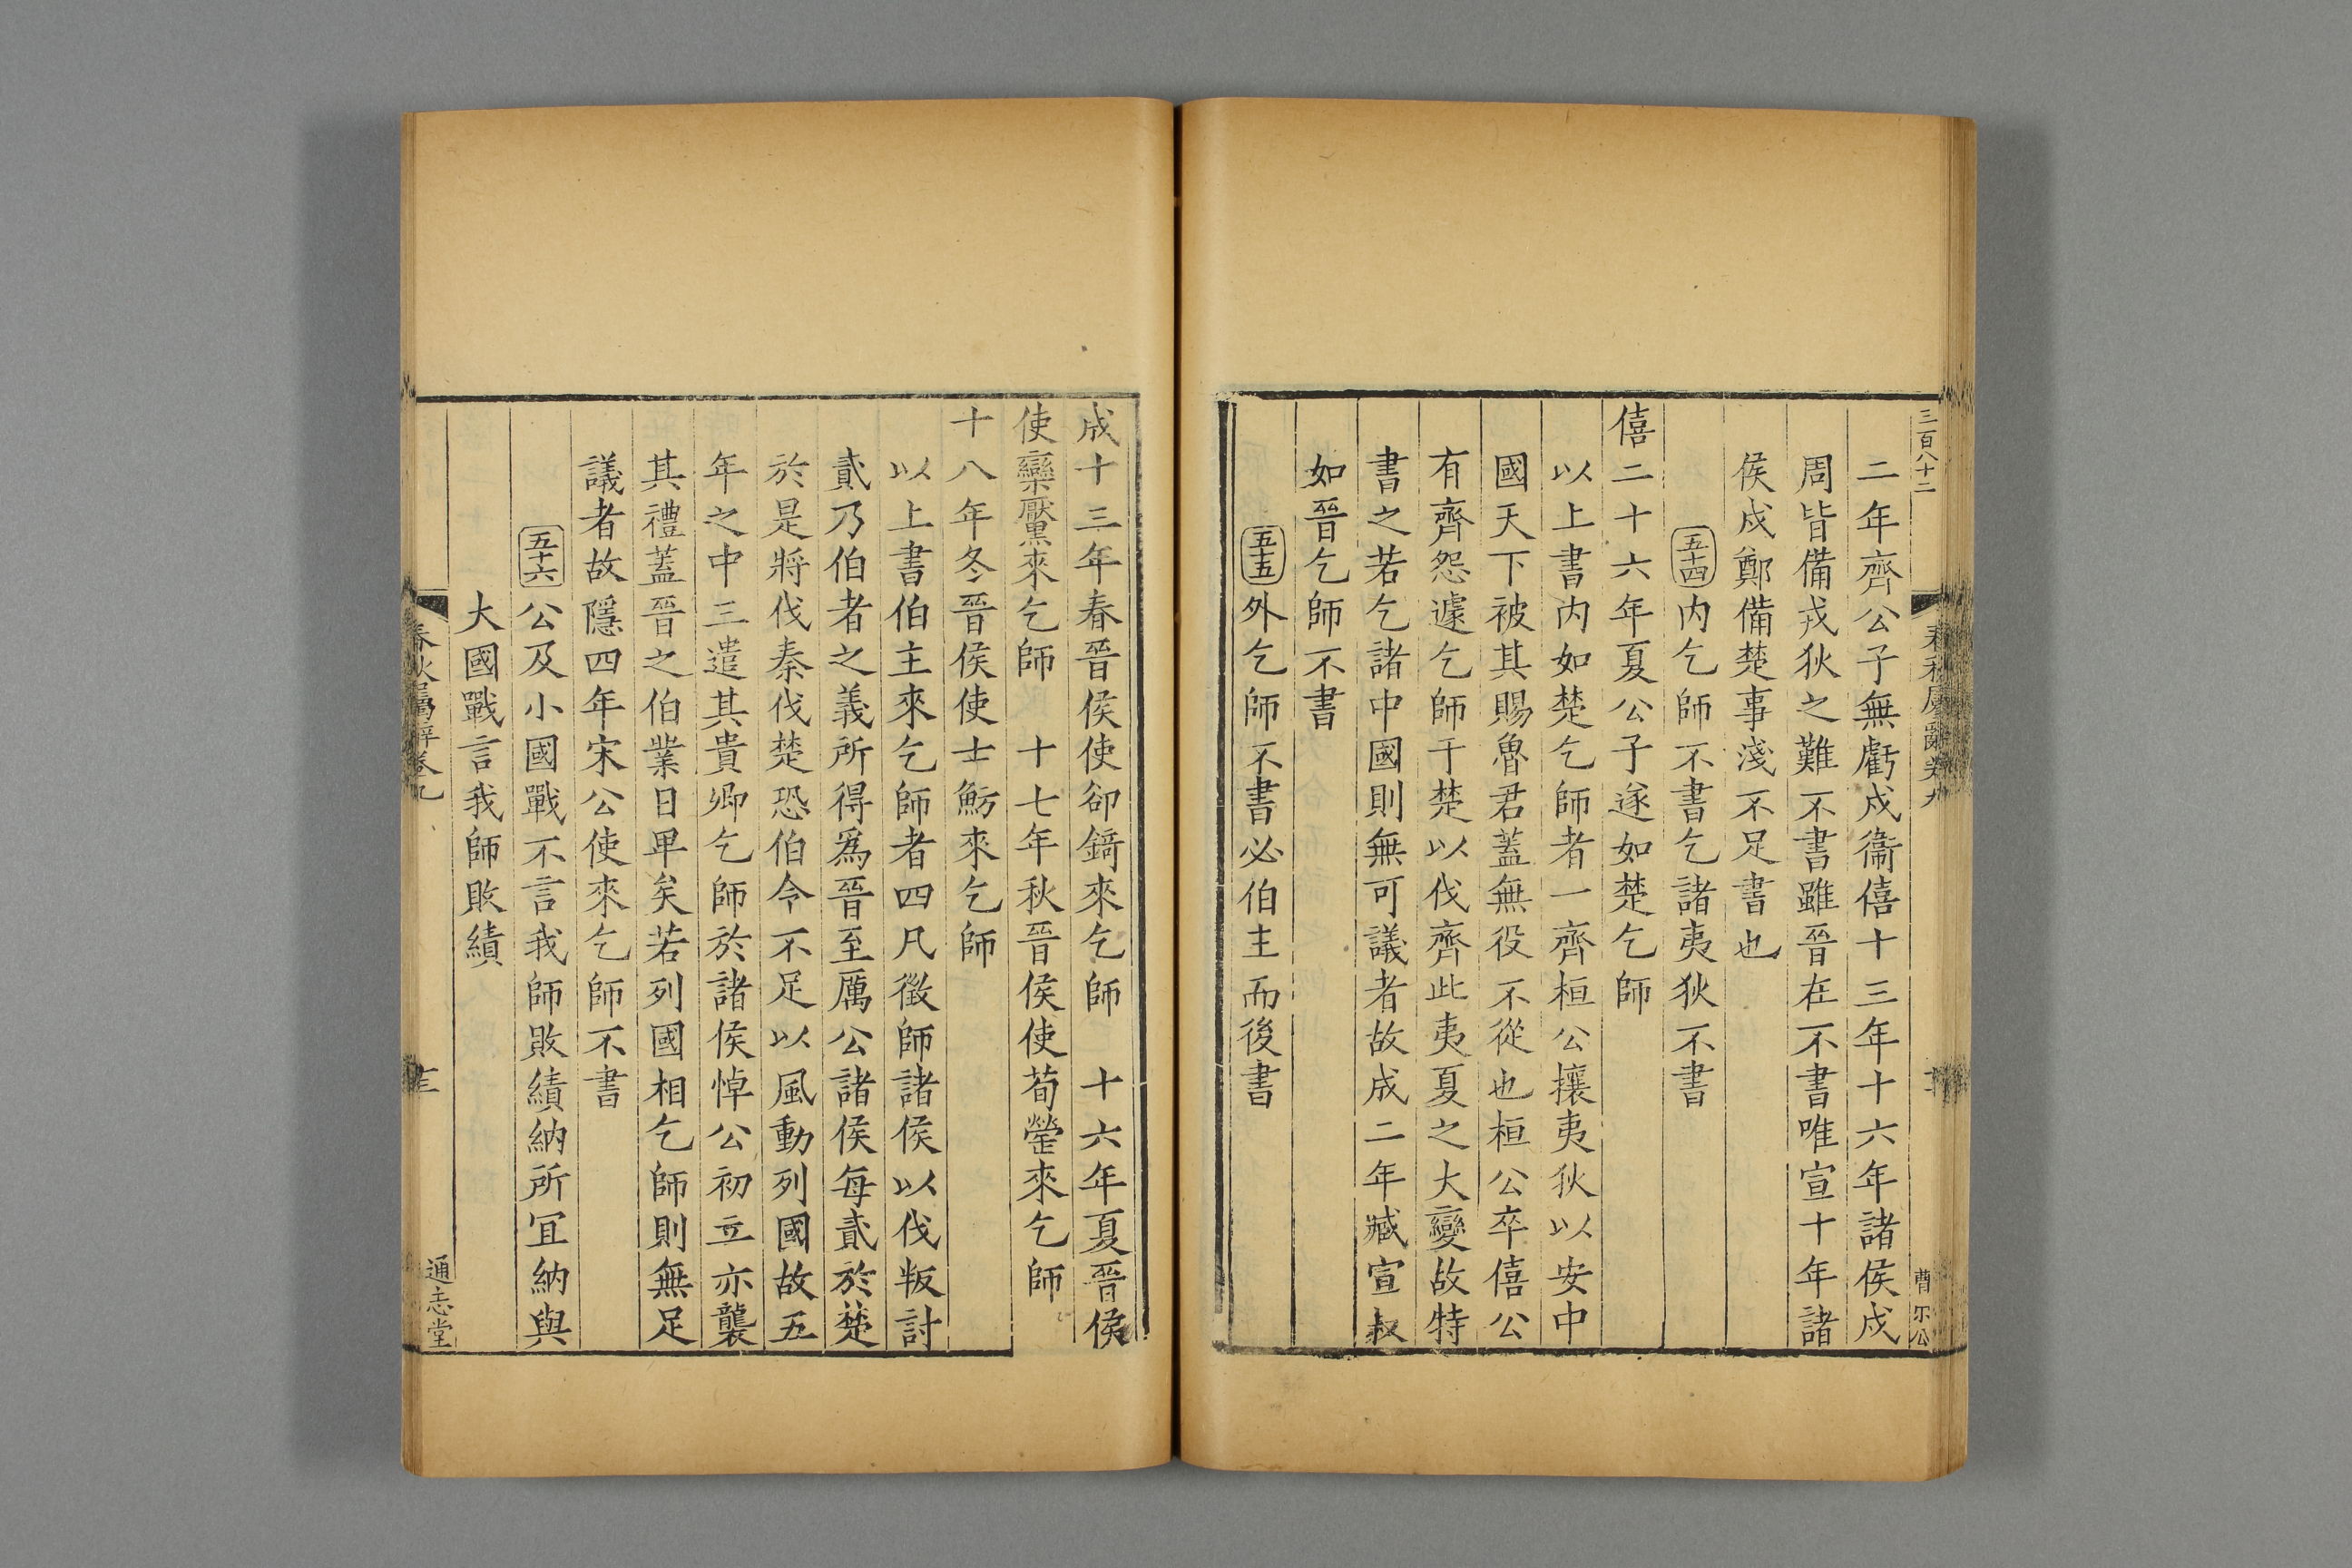 三百八十二
春秋屬辭卷九
曹尔公
二年齊公子無虧戍衞僖十三年十六年諸侯戍
周皆備戎狄之難不書雖晉在不書唯宣十年諸
侯戍鄭備楚事淺不足書也
五十四内乞師不書乞諸夷狄不書
僖二十六年夏公子遂如楚乞師
以上書内如楚乞師者一齊桓公攘夷狄以安中
國天下被其賜魯君蓋無役不從也桓公卒僖公
有齊怨遽乞師于楚以伐齊此夷夏之大變故特
書之若乞諸中國則無可議者故成二年臧宣叔
如晉乞師不書
五十五外乞師不書必伯主而後書
成十三年春晉侯使郤錡來乞師　十六年夏晉侯
使欒黶來乞師　十七年秋晉侯使荀罃來乞師
十八年冬晉侯使士魴來乞師
以上書伯主來乞師者四凡徵師諸侯以伐叛討
貳乃伯者之義所得爲晉至厲公諸侯每貳於楚
於是將伐秦伐楚恐伯令不足以風動列國故五
年之中三遣其貴卿乞師於諸侯悼公初立亦襲
其禮蓋晉之伯業日卑矣若列國相乞師則無足
議者故隱四年宋公使來乞師不書
五十六公及小國戰不言我師敗績納所宜納與
大國戰言我師敗績
春秋屬辭卷九
通志堂